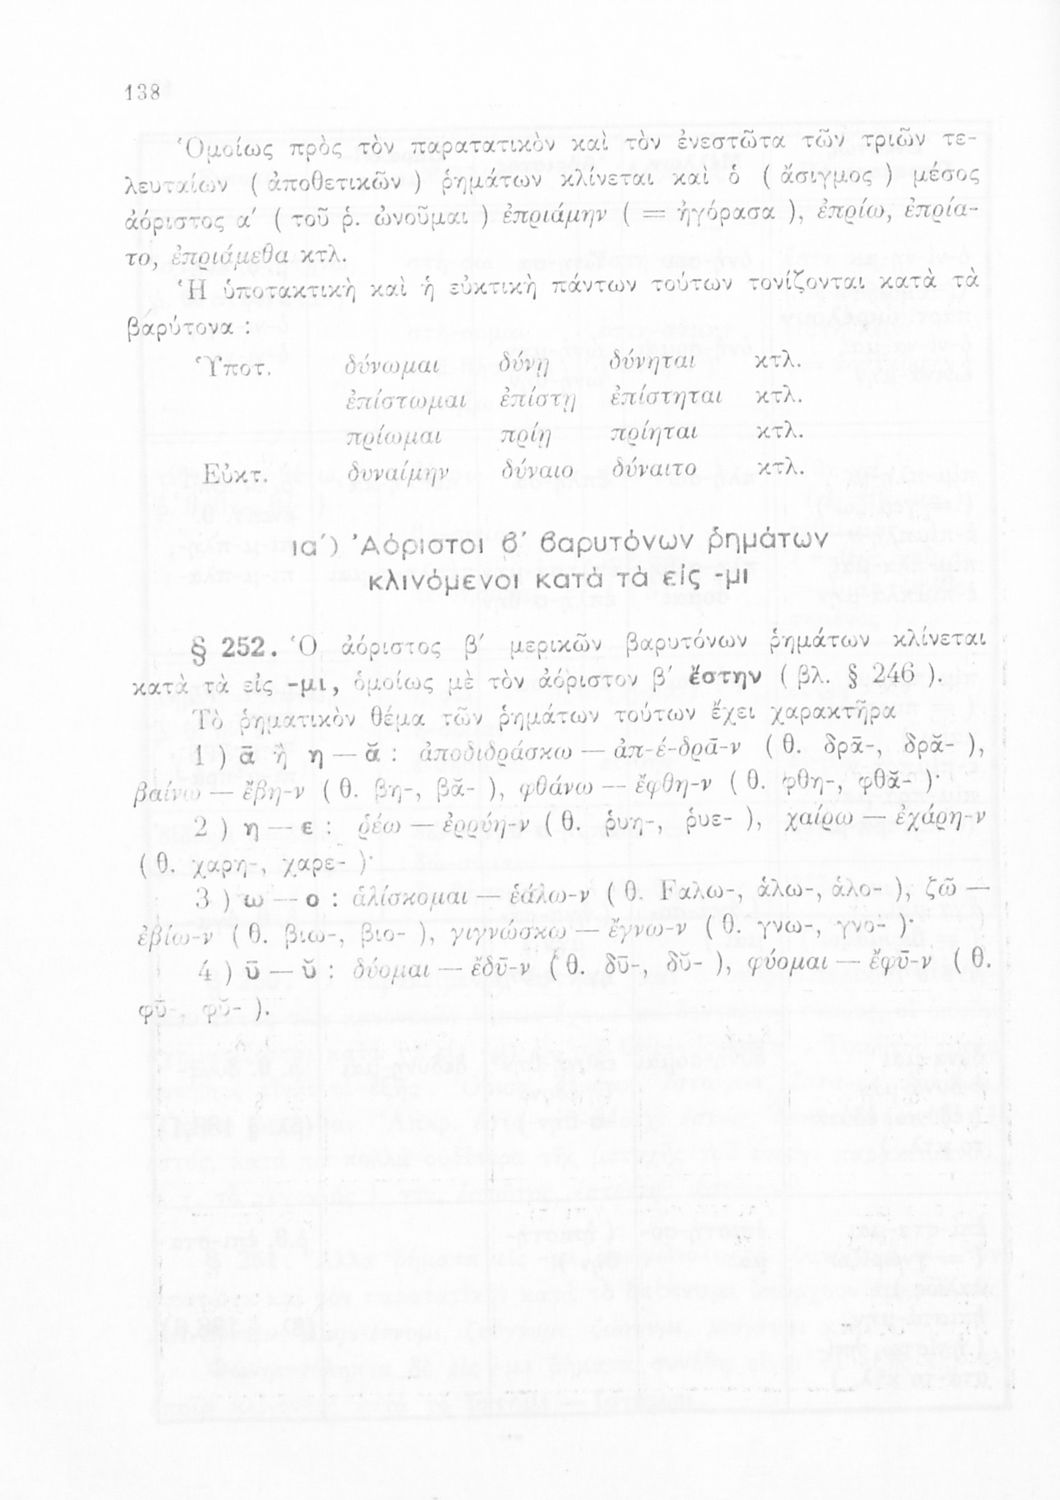 138
Ὁμοίως πρὸς τὸν παρατατικὸν καὶ τὸν ἐνεστῶτα τῶν τριῶν τε-
λευταίων ( ἀποθετικῶν ) ῥημάτων κλίνεται καὶ ὁ ( ἄσιγμος ) μέσος
ἀόριστος α΄ ( τοῦ ῥ. ὠνοῦμαι ) ἐπριάμην ( = ἠγόρασα ), ἐπρίω, ἐπρία-
το, ἐπριάμεθα κτλ.
Ἡ ὑποτακτικὴ καὶ ἡ εὐκτικὴ πάντων τούτων τονίζονται κατὰ τὰ
βαρύτονα :
Ὑποτ. δύνωμαι δύνῃ δύνηται κτλ.
ἐπίστωμαι ἐπίστῃ ἐπίστηται κτλ.
πρίωμαι πρίῃ πρίηται κτλ.
Εὐκτ. δυναίμην δύναιο δύναιτο κτλ.
ια΄) Ἀόριστοι β΄ βαρυτόνων ῥημάτων
κλινόμενοι κατὰ τὰ εἰς -μι
§ 252. Ὁ ἀόριστος β΄ μερικῶν βαρυτόνων ῥημάτων κλίνεται
κατὰ τὰ εἰς -μι, ὁμοίως μὲ τὸν ἀόριστον β΄ ἔστην ( βλ. § 246 ).
Τὸ ῥηματικὸν θέμα τῶν ῥημάτων τούτων ἔχει χαρακτῆρα
1 ) ᾱ ἢ η — ᾰ : ἀποδιδράσκω — ἀπ-έ-δρᾱ-ν ( θ. δρᾱ-, δρᾰ- ),
βαίνω — ἔβη-ν ( θ. βη-, βᾰ- ), φθάνω — ἔφθη-ν ( θ. φθη-, φθᾰ- )·
2 ) η — ε : ῥέω — ἐρρύη-ν ( θ. ῥυη-, ῥυε- ), χαίρω — ἐχάρη-ν
( θ. χαρη-, χαρε- )·
3 ) ω — ο : ἁλίσκομαι — ἑάλω-ν ( θ. Fαλω-, ἁλω-, ἁλο- ), ζῶ —
ἐβίω-ν ( θ. βιω-, βιο- ), γιγνώσκω — ἔγνω-ν ( θ. γνω-, γνο- )·
4 ) ῡ — ῠ : δύομαι — ἔδῡ-ν ( θ. δῡ-, δῠ- ), φύομαι — ἔφῡ-ν ( θ.
φῡ-, φῠ- ).